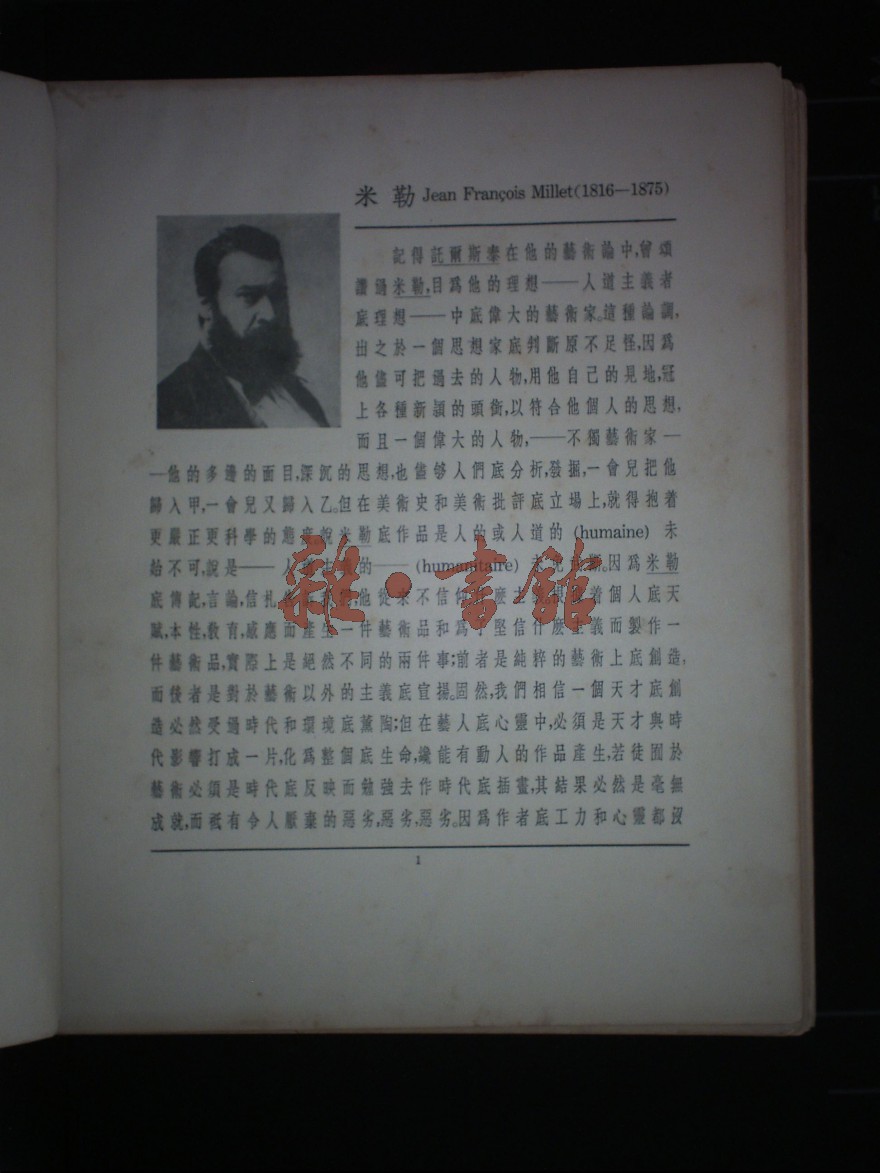 米勒 Jean François Millet(1816—1875)
記得託爾斯泰在他的藝術論中,曾頌
讚過米勒,目爲他的理想——人道主義者
底理想——中底偉大的藝術家。這種論調,
出之於一個思想家底判斷原不足怪,因爲
他儘可把過去的人物,用他自己的見地,冠
上各種新穎的頭銜,以符合他個人的思想,
而且一個偉大的人物,——不獨藝術家—
—他的多邊的面目,深沉的思想,也儘够人們底分析,發掘,一會兒把他
歸入甲,一會兒又歸入乙。但在美術史和美術批評底立場上,就得抱着
更嚴正更科學的態度,說米勒底作品是人的或人道的 (humaine) 未
始不可,說是——人道主義的——(humanitaire) 未免。因爲米勒
底傳記,言論,信札他從來不信什麼主着個人底天
賦,本性,教育,感應而產生一件藝術品和爲了堅信什麽主義而製作一
件藝術品,實際上是絕然不同的兩件事;前者是純粹的藝術上底創造,
而後者是對於藝術以外的主義底宣揚。固然,我們相信一個天才底創
造必然受過時代和環境底薰陶;但在藝人底心靈中,必須是天才與時
代影響打成一片,化爲整個底生命,纔能有動人的作品產生,若徒囿於
藝術必須是時代底反映而勉強去作時代底插畫,其結果必然是毫無
成就,而祇有令人厭棄的惡劣,惡劣,惡劣。因爲作者底工力和心靈都沒
1
雜·書館